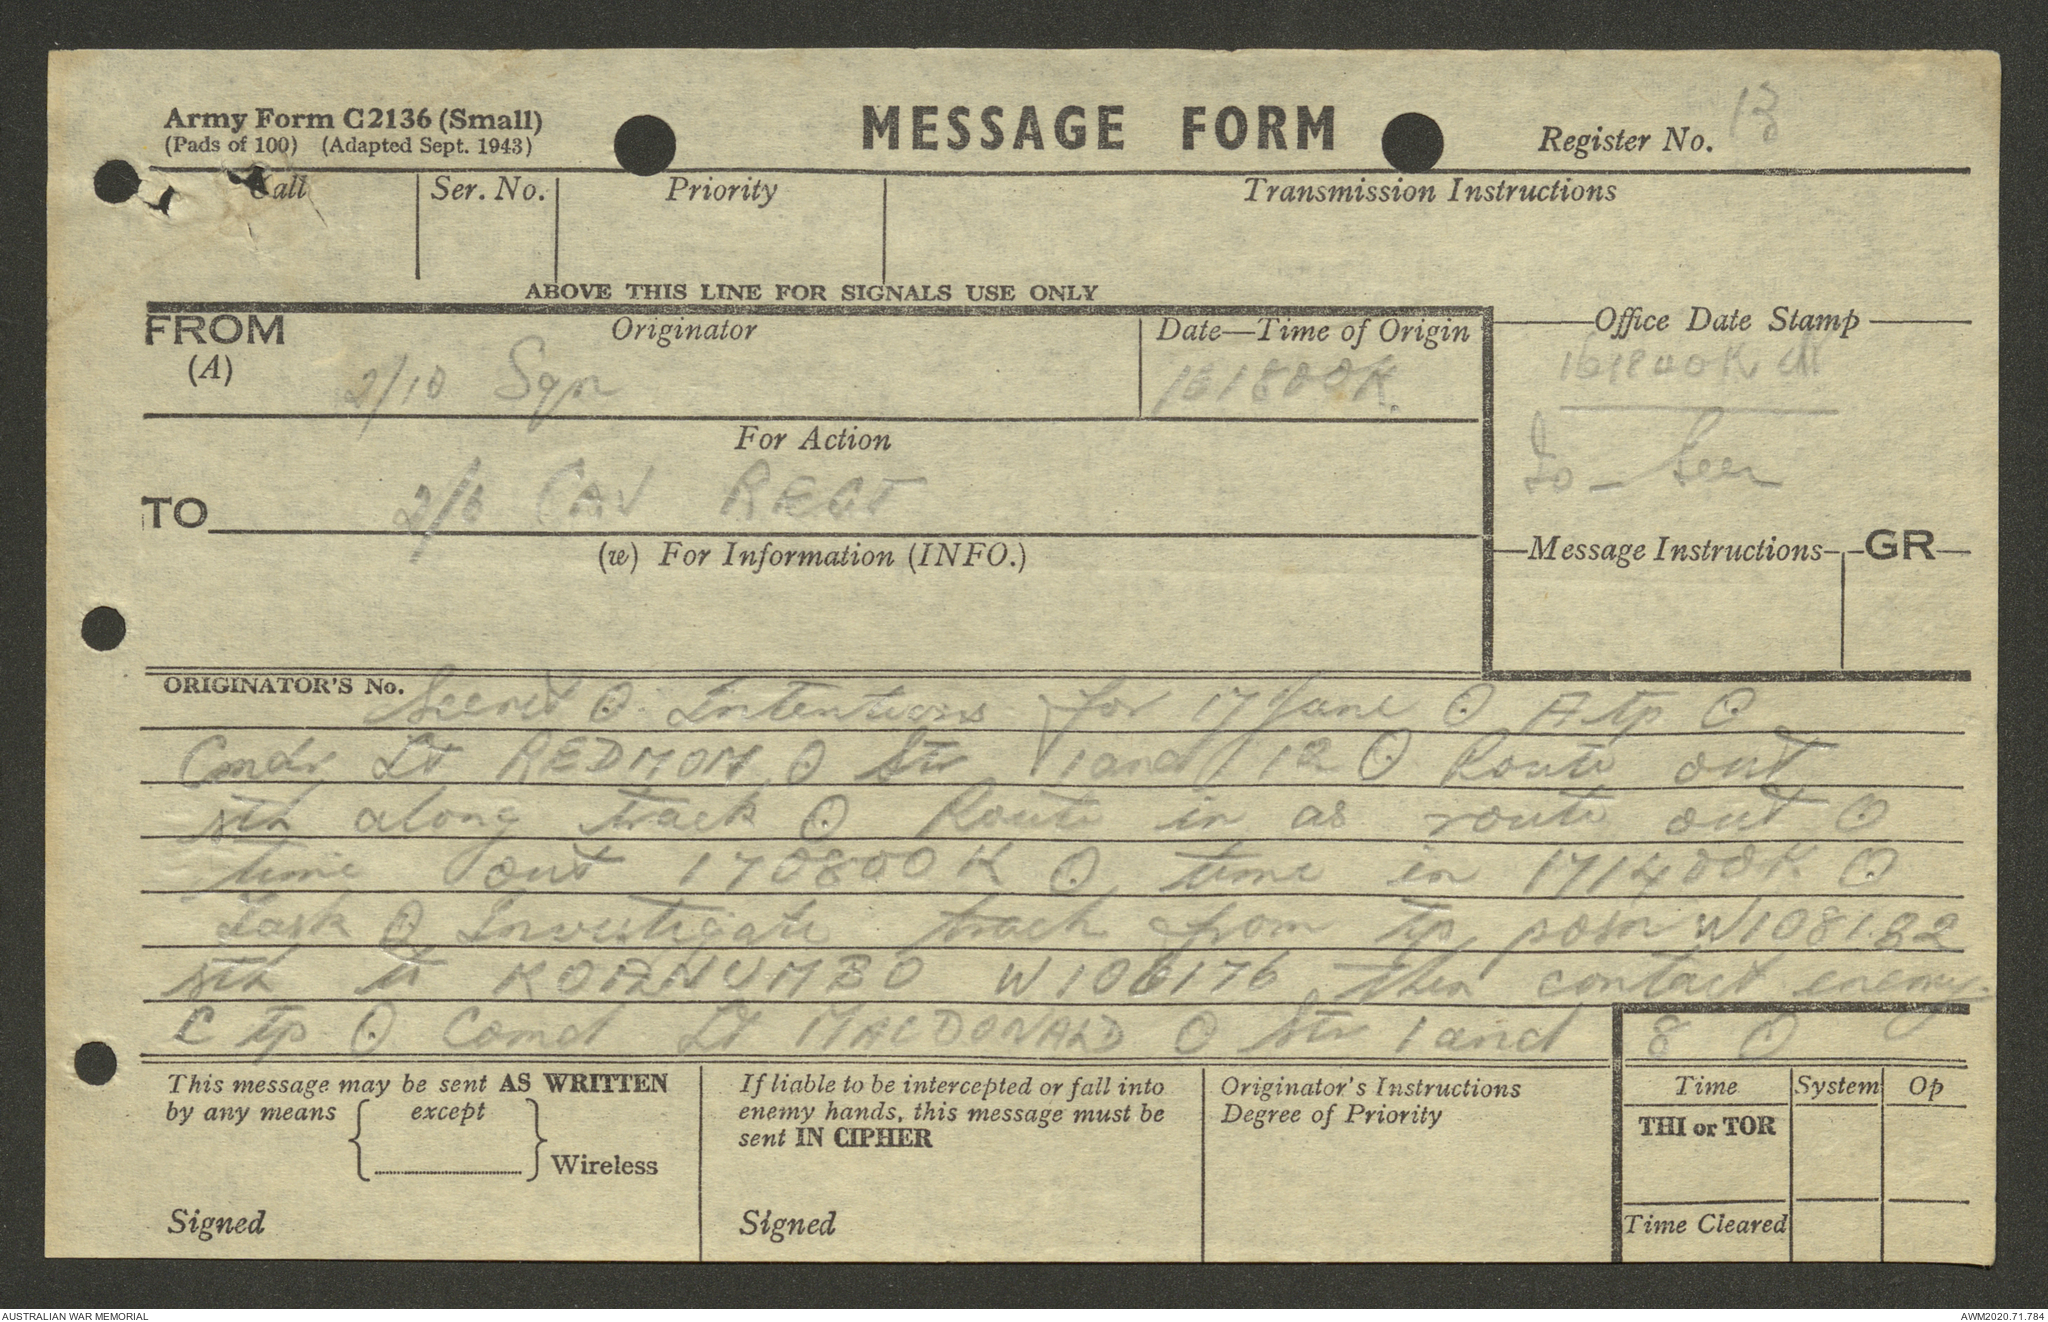 Army Form C2136 (Small)
(Pads of 100) (Adapted Sept. 1943)
MESSAGE FORM
Register No. 13
Call
Ser. No.
Priority
Transmission Instructions
ABOVE THIS LINE FOR SIGNALS USE ONLY
FROM
(A)
Originator
2/10 Sqn
Date—Time of Origin
161800K
Office Date Stamp
161800K
Io - Seen
For Action
TO
2/6 CAV REGT
(w) For Information (INFO.)
Message Instructions
GR
ORIGINATOR'S No.
Secret O Intentions for 17 June O A tp O
Cmdr Lt REDMOM O Str 1 and 12 O Route out
sth along track O Route in as route out O
time out 170800K O time in 171400K O
Task O Investigate track from tp posn W108182
sth to KOANUMBO W106176 then contact enemy.
C tp O Comd Lt MACDONALD O Str 1 and 8 O
This message may be sent AS WRITTEN
by any means { except } Wireless
Signed
If liable to be intercepted or fall into
enemy hands, this message must be
sent IN CIPHER
Signed
Originator's Instructions
Degree of Priority
Time
System
Op
THI or TOR
Time Cleared
AUSTRALIAN WAR MEMORIAL
AWM2020.71.784